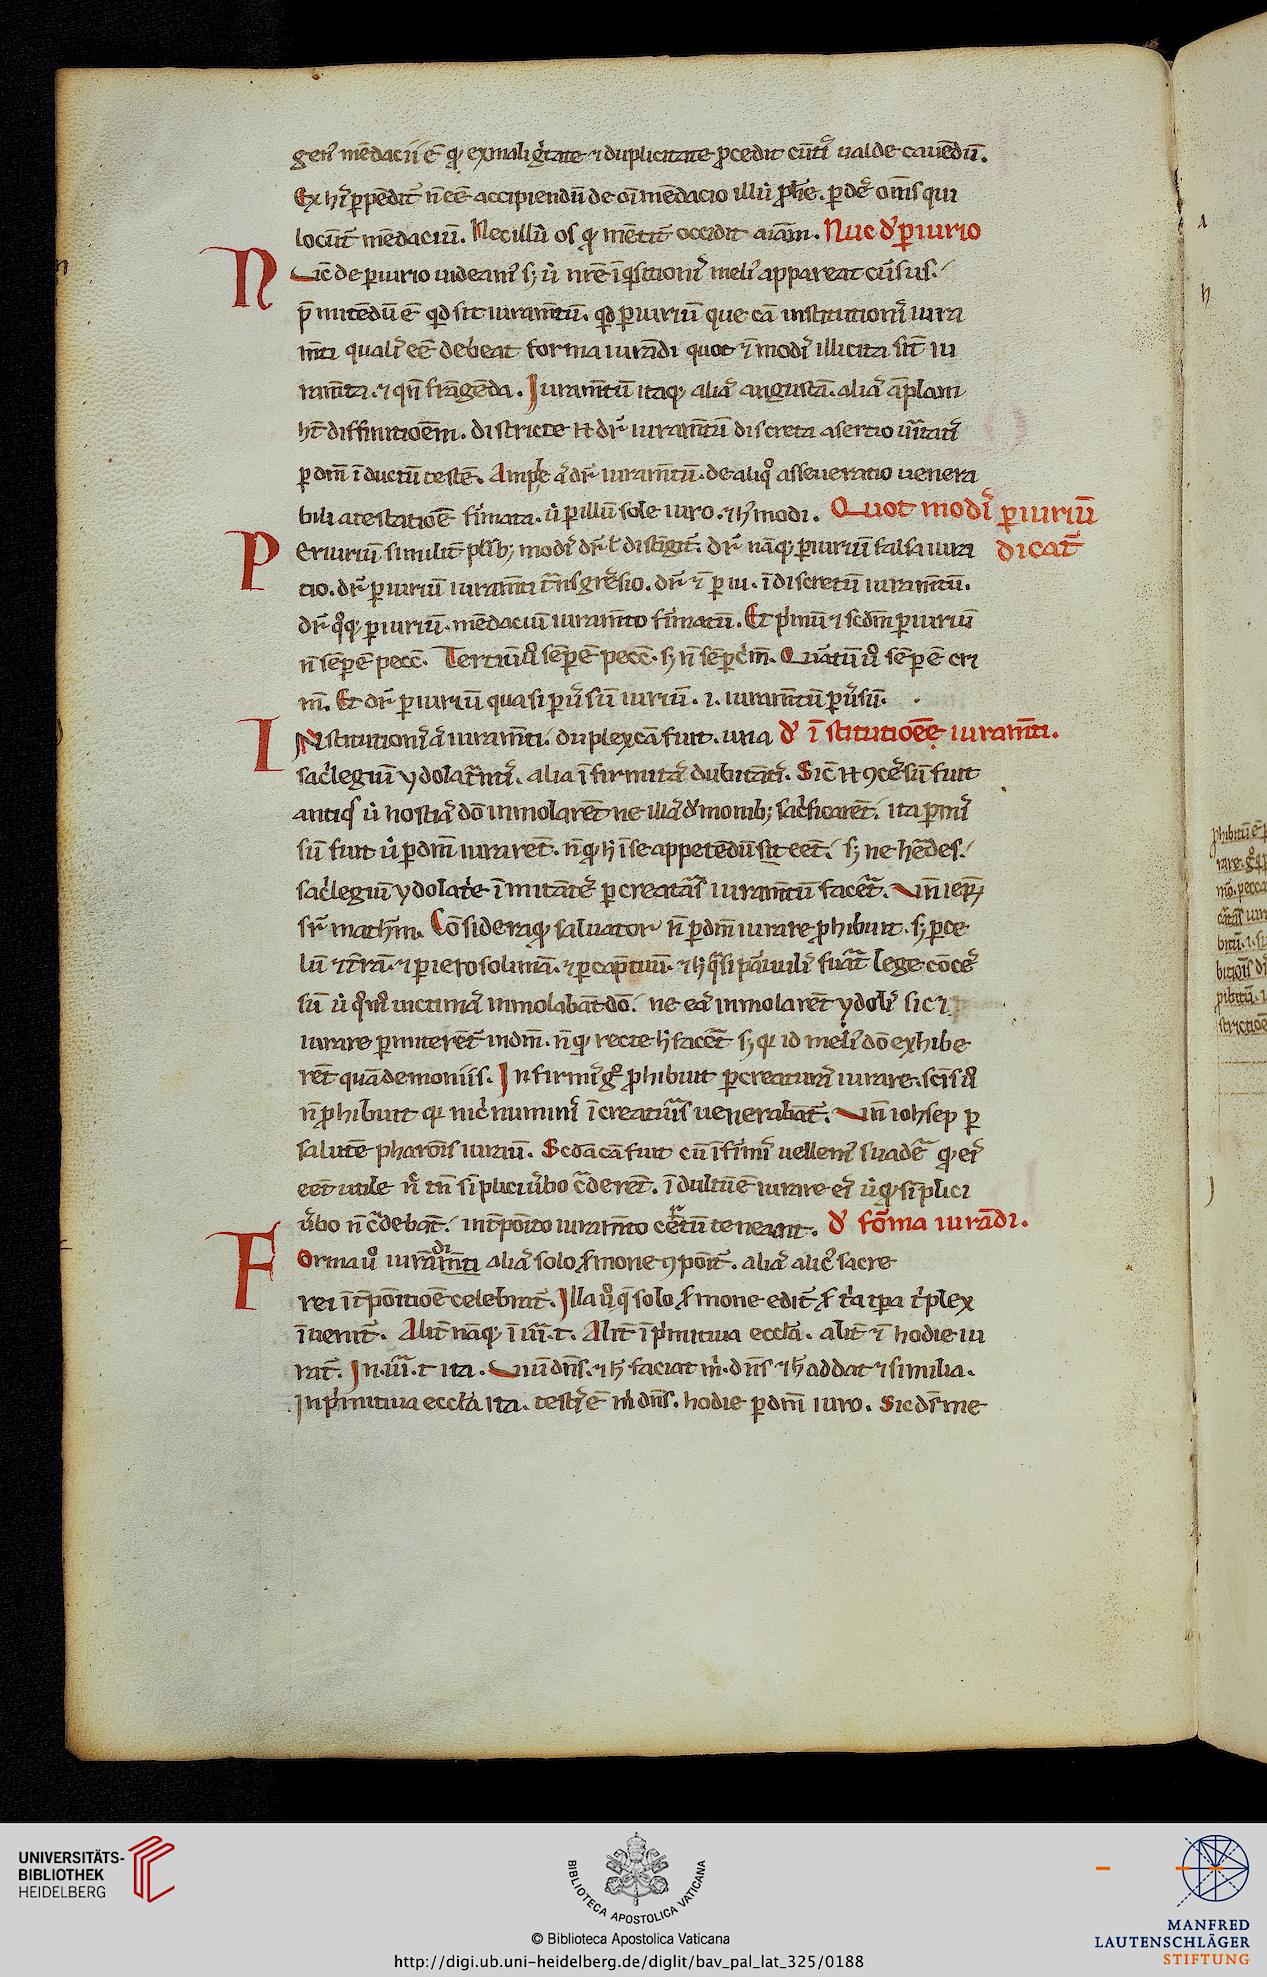 gen᷒ mēdacii ē q̇ exmaligͥtate ⁊ duplicitate ꝓcedit cūtͥ ualde cauēdū.
Ex hiͥ ꝑpēdit᷑ n̄ eē accipiendū de oī mēdacio illū ꝓph̄e. ꝑdeͥ om̄s qui
locūt᷑ mēdaciū. Nec illū os qͥ mētit᷑ occidit aīam. Nūc d̓ ꝑiurio
Nūc de ꝑiurio uideam᷒ sꝫ ut̓ nr̄e īq̇sitioniͥ meli᷒ appareat cūsus.
p̄mitēdū ē qd̓ sit iuram̄tū. qd̓ ꝑiuriū que cā institutioniͥ iura
m̄ti qualiͥ eē debeat forma iurādi quot ⁊ modiͥ illicita sīt iu
ram̄ta. ⁊ qn̄ frāgēda. Iuram̄tū itaqꝫ aliāͥ angustā. aliāͥ āplam
h̄t diffinitioēm. districte n̄ dr̄ iuram̄tū discreta asertio uͥitatiͥ
ꝑ dm̄ īductū testē. Ample aͥ dr̄ iuram̄tū. de aliqͦ asseueratio uenera
bili atestatioē fiͥmata. ut̓ ꝑ illū sole iuro. ⁊ hͥ modi. Quot modiͥ ꝑiuriū
Periuriū similit᷑ plͥbꝫ modiͥ dr̄ ł distīgit᷑. dr̄ nāqꝫ ꝑiuriū falsa iura dicat᷑
tio. dr̄ ꝑiuriū iuram̄ti trāsgr̄esio. dr̄ ⁊ ꝑiu. īdiscretū iuram̄tū.
dr̄ qͦqꝫ ꝑiuriū. mēdaciū iuram̄to fiͥmatū. Et pͥmū ⁊ scd̄m ꝑiuriū
n̄ sēꝑ ē pecc̄. Tertiū uͦ sēꝑ ē pecc̄. sꝫ n̄ sēꝑ cͥm̄. Quātū uͦ sēꝑ ē cri
m̄. Et dr̄ ꝑiuriū quasi ꝑuͥsū iuriū. .i. iuram̄tū ꝑuͥsū.
INstitutioniͥ aͥ iuram̄ti. duplex cā fuit. una d̓ īstitutioēe iuram̄ti.
sacͥlegiū ydolatͥm̄tiͥ. alia īfirmitaͥ dubitātiͥ. Sic̄ n̄ ꝯceͥsū fuit
antiqͥ ut̓ hostiaͥ dō inmolarēt ne illaͥ d̓monibꝫ sacͥficarēt. ita ꝑmiͥ
sū fuit ut̓ ꝑ dm̄ iurarēt. n̄ qͥ hͥ ī se appetēdū sit eēt. sꝫ ne hēdes.
sacͥlegiū ydolatͥe īmitāteͥ ꝑ creatāͥs iuram̄tū facēt᷑. Un̄ ieꝝ
sr̄ math̄m. Cōsideraqꝫ saluator n̄ ꝑ dm̄ iurare ꝓhibuit. sꝫ ꝑ ce
lū ⁊ tr̄rā. ⁊ ꝑ ierosolimā. ⁊ ꝑ cap̄ tuū. ⁊ hͥ qͣsi pāruuliͥ fuāt lege cōceͥ
sū ut̓ qͦmͦ uictimaͥ inmolabāt dō. ne eaͥ inmolarēt ydoliͥ sic ⁊
iurare ꝑmiterēt᷑ in dm̄. n̄ qͥ recte hͥ facēt sꝫ qͥ id meliͥ dō exhibe
rēt quā demoniis. Infirmiͥ gͦ ꝓhibuit ꝑ creaturaͥ iurare. scīs uͦ
n̄ ꝓhibuit qͥ nicͥ numiniͥ ī creatuͥis uenerabāt᷑. Un̄ iohsep ꝑ
salutē pharōis iuraū. Scd̄a cā fuit cū īfiͥmiͥ uellem᷒ suadēͣ qͥ eiͥ
eēt utile n̄ͥ tn̄ siplici uͥbo cͣderēt. īdultū ē iurare eiͥ ut̓ qͥ siplici
uͥbo n̄ cͣdebāt. int̄poīto iuram̄to certū teneant. d̓ fōma iurādi.
Forma uͦ iuram̄ti aliāͥ solo ẜmone ꝯpoīt᷑. aliāͥ alicͥ sacre
rei īt̄poītioē celebrat᷑. Illa uͦ q̄ solo ẜmone edit᷑ ẜ tͥa ip̄a tͥplex
īuenit᷑. Alit᷑ nāqꝫ ī uͥi. t. Alit᷑ ī pͥmitiua ecc̄la. alit᷑ ⁊ hodie iu
rat᷑. In uͥi. t ita. Uiū dn̄s. ⁊ hͥ faciat mͥ. dn̄s ⁊ hͥ addat ⁊ similia.
In pͥmitiua ecc̄la ita. testiͥ ē mͥ dn̄s. hodie ꝑ dm̄ iuro. Sic ds̄ me
UNIVERSITÄTS-
BIBLIOTHEK
HEIDELBERG
BIBLIOTECA APOSTOLICA VATICANA
© Biblioteca Apostolica Vaticana
http://digi.ub.uni-heidelberg.de/diglit/bav_pal_lat_325/0188
MANFRED
LAUTENSCHLÄGER
STIFTUNG